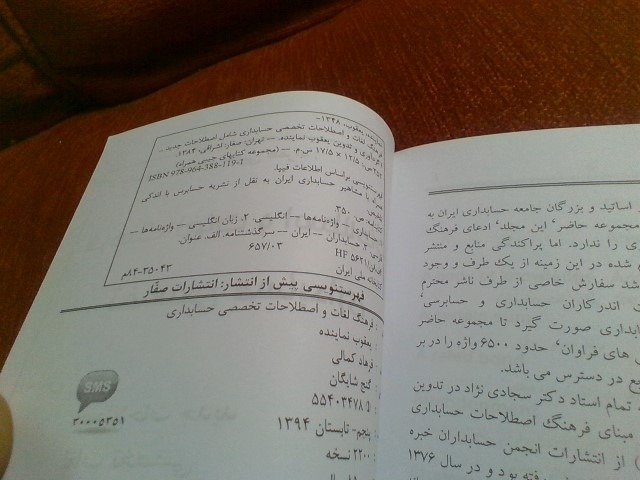 نماینده، یعقوب، ۱۳۴۸-
فرهنگ لغات و اصطلاحات تخصصی حسابداری شامل اصطلاحات جدید ..
گردآوری و تدوین یعقوب نماینده. — تهران: صفار: اشراقی، ۱۳۸۴.
۳۵۲ ص.؛ ۱۲/۵ × ۱۷/۵ س م. — (مجموعه کتابهای جیبی همراه)
ISBN 978-964-388-119-1
فهرستنویسی براساس اطلاعات فیپا.
همراه با مشاهیر حسابداری ایران به نقل از نشریه حسابرس با اندکی
تلخیص.
کتابنامه: ص. ۳۵۰.
۱. حسابداری — واژه‌نامه‌ها — انگلیسی. ۲. زبان انگلیسی — واژه‌نامه‌ها —
فارسی. ۳. حسابداران — ایران — سرگذشتنامه. الف. عنوان.
۶۵۷/۰۳
HF ۵۶۲۱
کتابخانه ملی ایران
۸۴-۳۵۰۴۳م
فهرستنویسی پیش از انتشار: انتشارات صفّار
: فرهنگ لغات و اصطلاحات تخصصی حسابداری
: یعقوب نماینده
: فرهاد کمالی
: گنج شایگان
۵۵۴۰۳۴۷۸
: پنجم- تابستان ۱۳۹۴
: ۲۲۰۰ نسخه
SMS
۳۰۰۰۵۳۵۱
اساتید و بزرگان جامعه حسابداری ایران به
مجموعه حاضر، این مجلد، ادعای فرهنگ
را ندارد. اما پراکندگی منابع و منتشر
شده در این زمینه از یک طرف و وجود
شد سفارش خاصی از طرف ناشر محترم
ت اندرکاران حسابداری و حسابرسی،
بداری صورت گیرد تا مجموعه حاضر
های فراوان، حدود ۶۵۰۰ واژه را در بر
ع در دسترس می باشد.
تمام استاد دکتر سجادی نژاد در تدوین
مبنای فرهنگ اصطلاحات حسابداری
) از انتشارات انجمن حسابداران خبره
رفته بود و در سال ۱۳۷۶